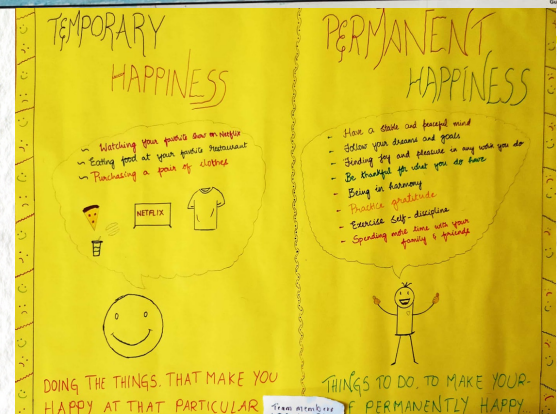 TEMPORARY
HAPPINESS
~ Watching your favorite show on Netflix
~ Eating food at your favorite restaurant
~ Purchasing a pair of clothes
NETFLIX
DOING THE THINGS. THAT MAKE YOU
HAPPY AT THAT PARTICULAR
PERMANENT
HAPPINESS
- Have a stable and peaceful mind
- Follow your dreams and goals
- Finding joy and pleasure in any work you do
- Be thankful for what you do have
- Being in harmony
- Practice gratitude
- Exercise Self-discipline
- Spending more time with your
family & friends
THINGS TO DO, TO MAKE YOUR-
F PERMANENTLY HAPPY
Team members